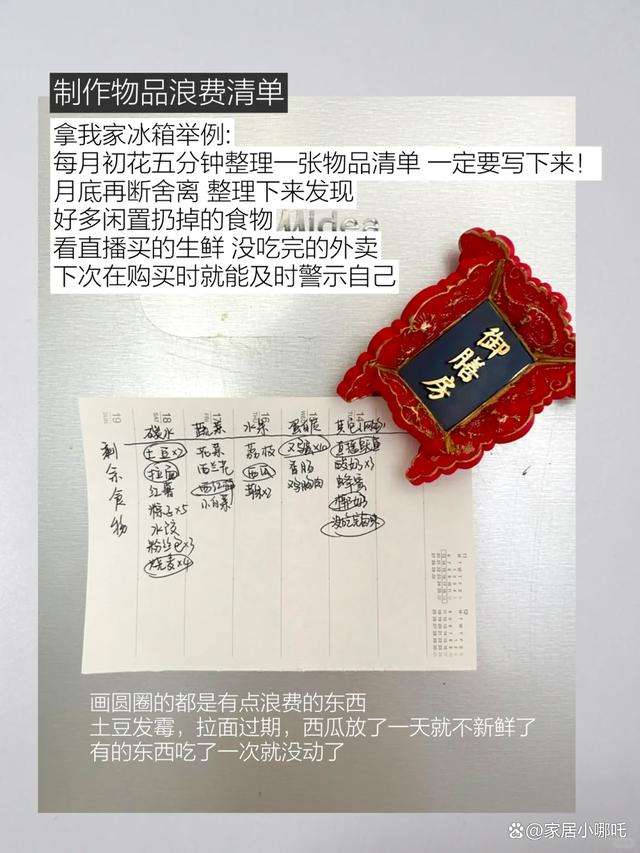 制作物品浪费清单
拿我家冰箱举例:
每月初花五分钟整理一张物品清单 一定要写下来！
月底再断舍离 整理下来发现
好多闲置扔掉的食物
看直播买的生鲜 没吃完的外卖
下次在购买时就能及时警示自己
Midea
御膳房
19 18 17 16 15 14
剩余食物
碳水 蔬菜 水果 蛋白质
土豆×2 花菜 荔枝
拉面 西兰花 西瓜 香肠 酸奶×3
红薯 西红柿 鸡胸肉 蜂蜜
粽子×5 小白菜
水饺
粉丝包×3
烧麦×4
画圆圈的都是有点浪费的东西
土豆发霉，拉面过期，西瓜放了一天就不新鲜了
有的东西吃了一次就没动了
百家号@家居小哪吒